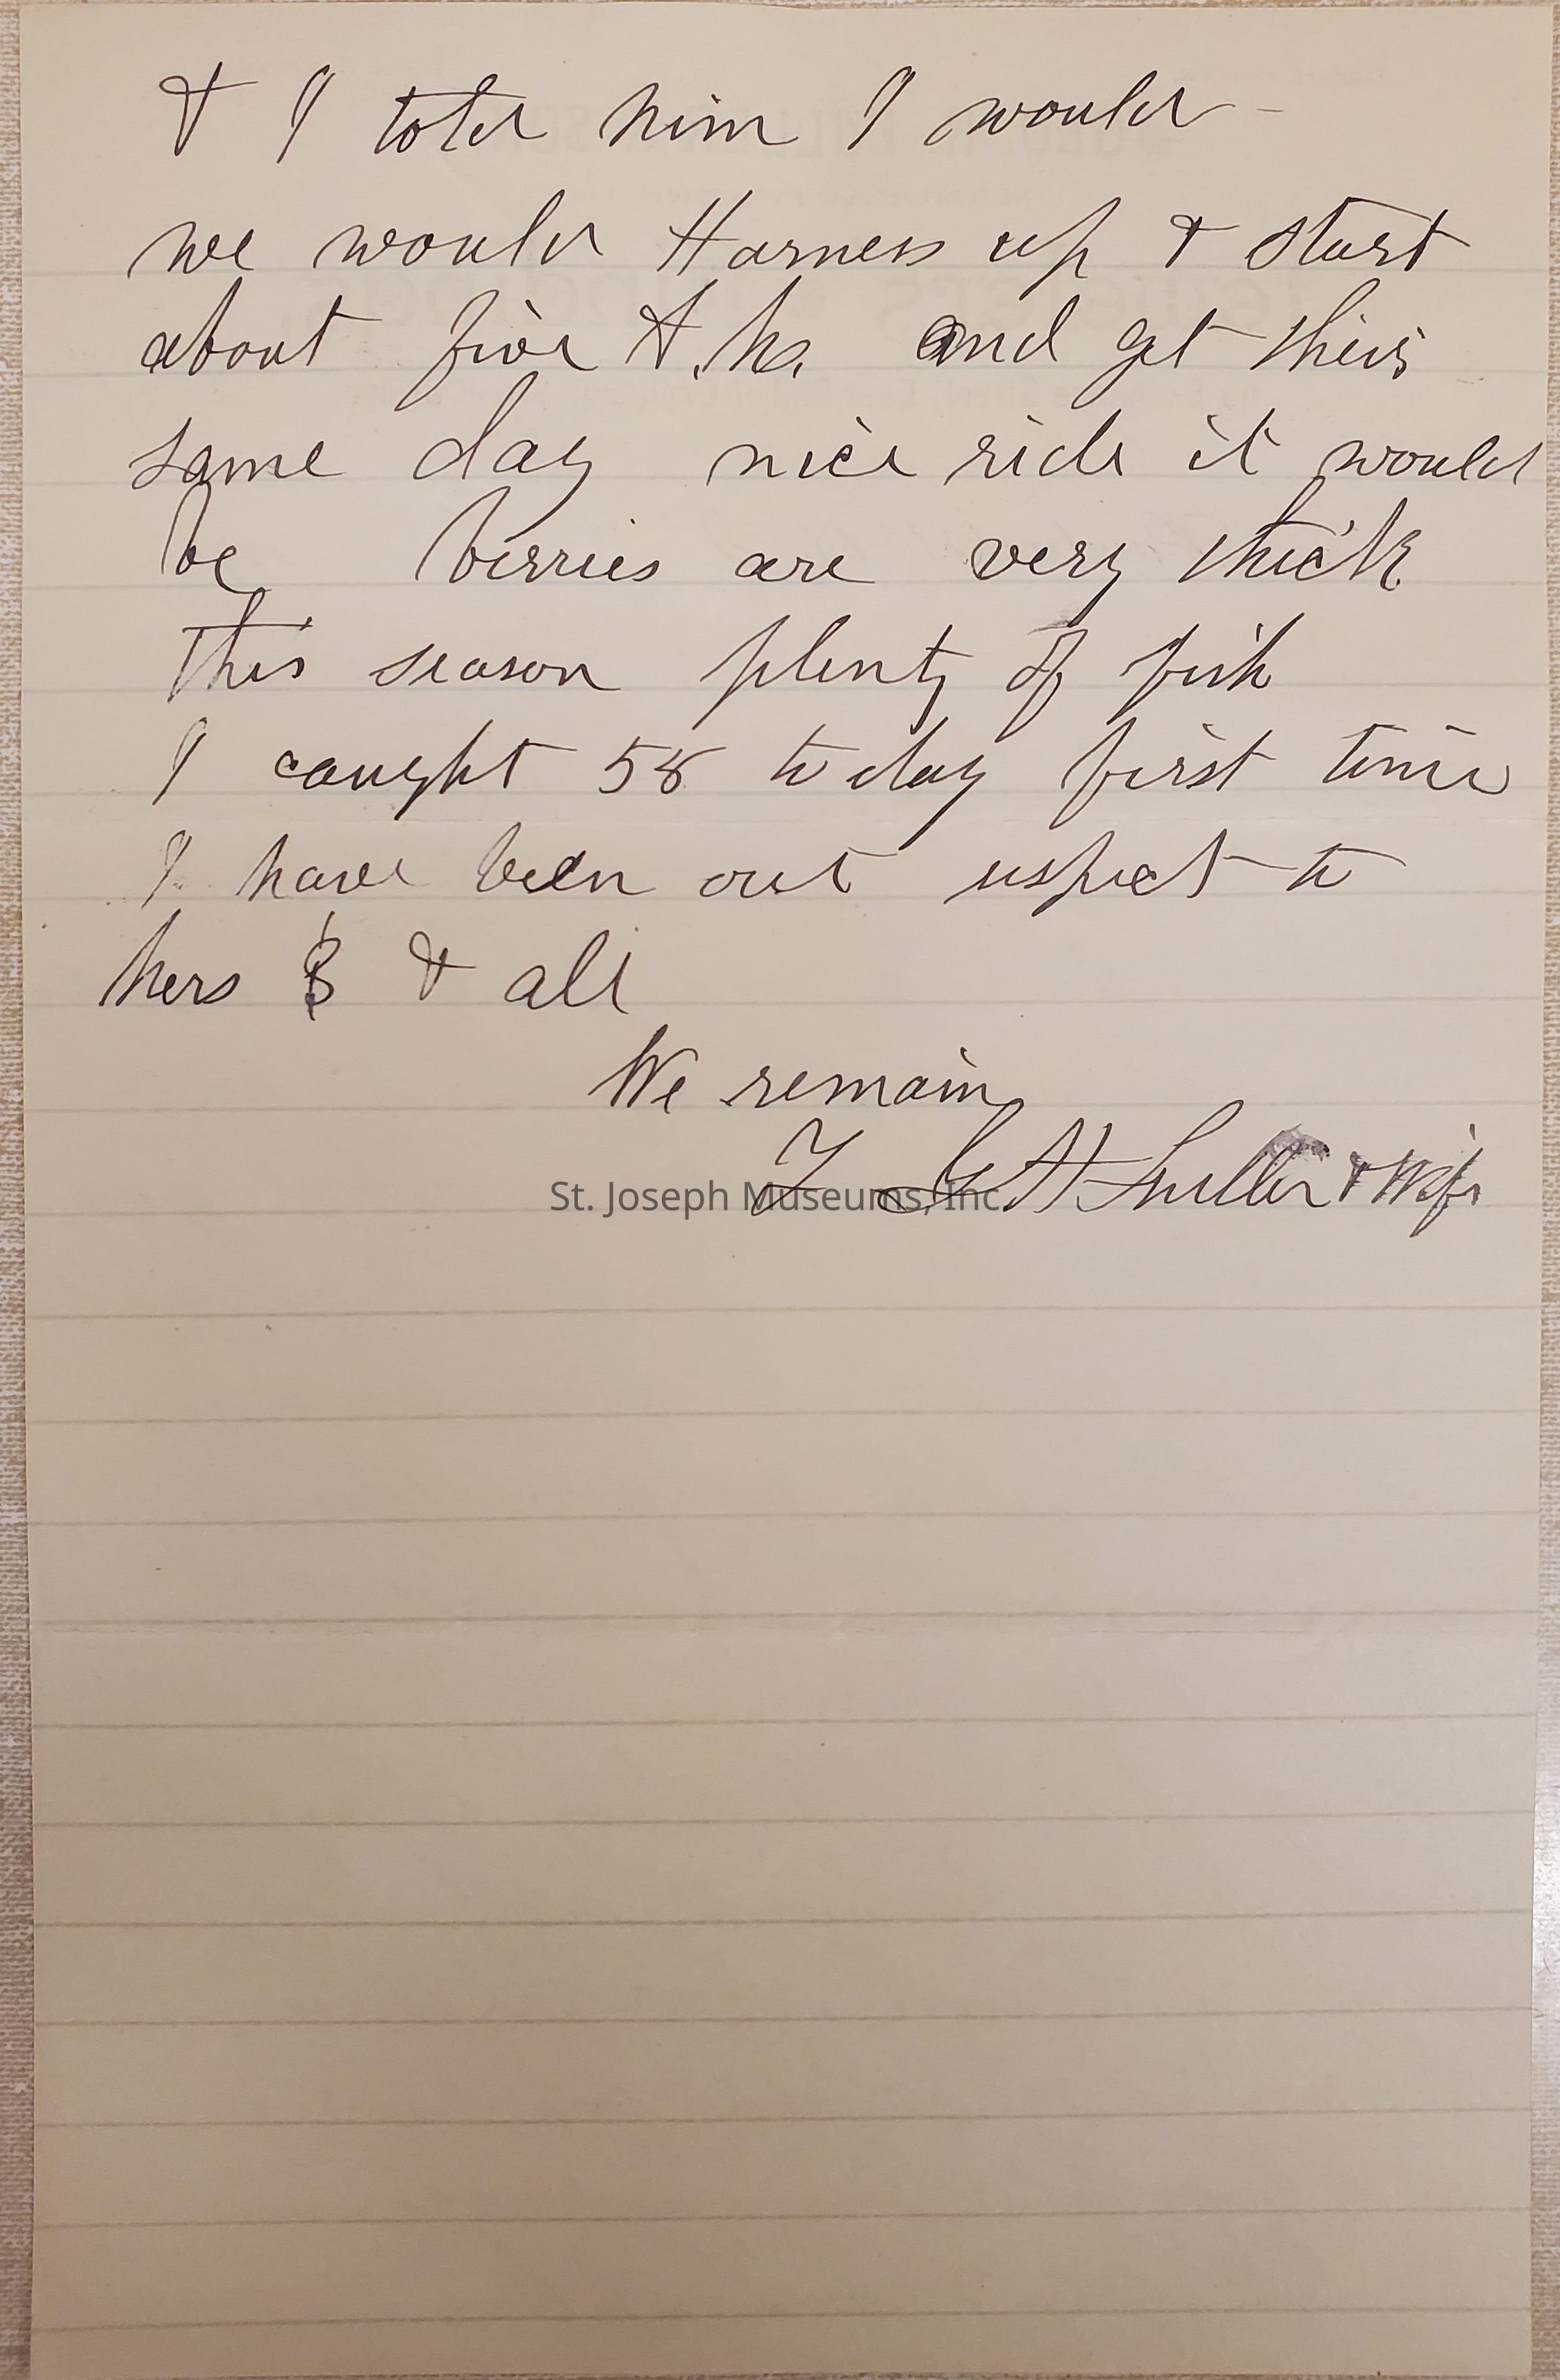 & I told him I would -
we would Harness up & start
about five A.M. and get thier
same day nice ride it would
be berries are very thick
This season plenty of fish
I caught 58 to day first time
I have been out respect to
Mrs B & all
We remain
G H Fuller & Wife
St. Joseph Museums, Inc.